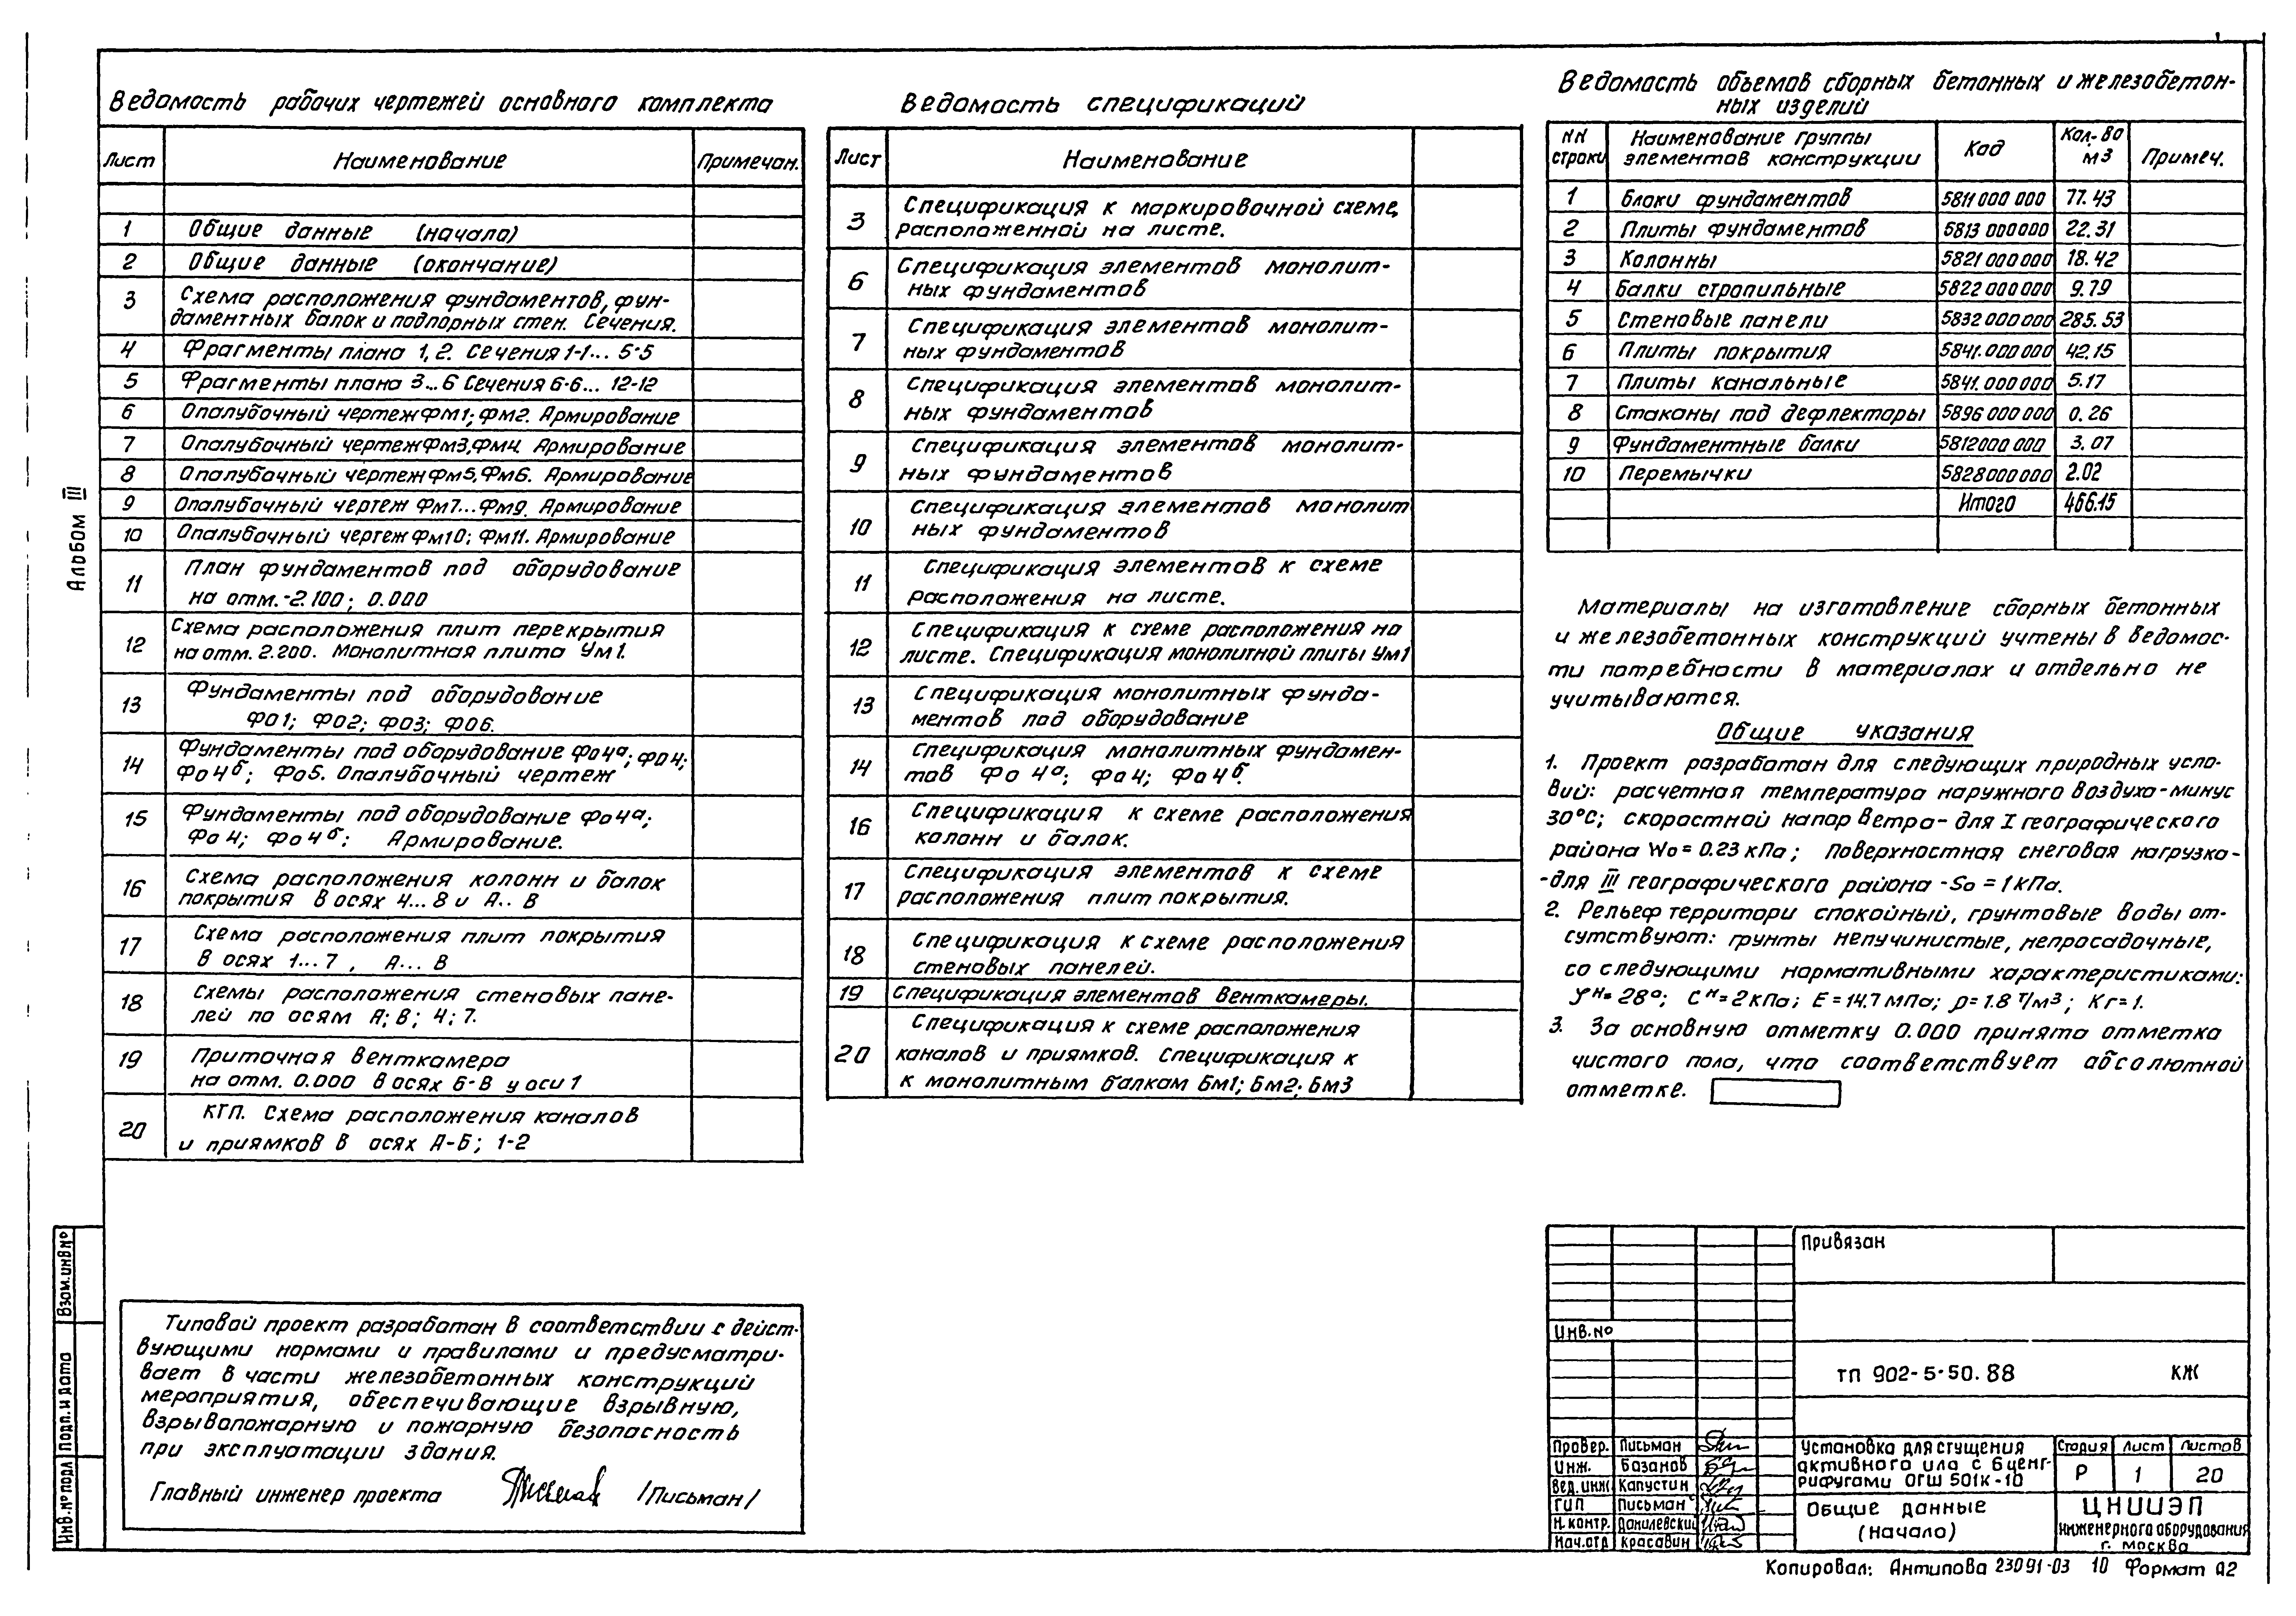 Альбом III
Ведомость рабочих чертежей основного комплекта
Лист Наименование Примечан.
1 Общие данные (начало)
2 Общие данные (окончание)
3 Схема расположения фундаментов, фун-
даментных балок и подпорных стен. Сечения.
4 Фрагменты плана 1, 2. Сечения 1-1... 5-5
5 Фрагменты плана 3...6 Сечения 6-6... 12-12
6 Опалубочный чертеж Фм1; Фм2. Армирование
7 Опалубочный чертеж Фм3, Фм4. Армирование
8 Опалубочный чертеж Фм5, Фм6. Армирование
9 Опалубочный чертеж Фм7...Фм9. Армирование
10 Опалубочный чертеж Фм10; Фм11. Армирование
11 План фундаментов под оборудование
на отм.-2.100; 0.000
12 Схема расположения плит перекрытия
на отм. 2.200. Монолитная плита Ум1.
13 Фундаменты под оборудование
ФО1; ФО2; ФО3; ФО6.
14 Фундаменты под оборудование Фо4а; Фо4;
Фо4б; Фо5. Опалубочный чертеж
15 Фундаменты под оборудование Фо4а;
Фо4; Фо4б; Армирование.
16 Схема расположения колонн и балок
покрытия в осях 4...8 и А.. В
17 Схема расположения плит покрытия
в осях 1...7, А... В
18 Схемы расположения стеновых пане-
лей по осям А; В; 4; 7.
19 Приточная венткамера
на отм. 0.000 в осях Б-В у оси 1
20 КГП. Схема расположения каналов
и приямков в осях А-Б; 1-2
Ведомость спецификаций
Лист Наименование
3 Спецификация к маркировочной схеме,
расположенной на листе.
6 Спецификация элементов монолит-
ных фундаментов
7 Спецификация элементов монолит-
ных фундаментов
8 Спецификация элементов монолит-
ных фундаментов
9 Спецификация элементов монолит-
ных фундаментов
10 Спецификация элементов монолит
ных фундаментов
11 Спецификация элементов к схеме
расположения на листе.
12 Спецификация к схеме расположения на
листе. Спецификация монолитной плиты Ум1
13 Спецификация монолитных фунда-
ментов под оборудование
14 Спецификация монолитных фундамен-
тов Фо 4а; Фо4; Фо4б.
16 Спецификация к схеме расположения
колонн и балок.
17 Спецификация элементов к схеме
расположения плит покрытия.
18 Спецификация к схеме расположения
стеновых панелей.
19 Спецификация элементов венткамеры.
20 Спецификация к схеме расположения
каналов и приямков. Спецификация к
к монолитным балкам Бм1; Бм2; Бм3
Ведомость объемов сборных бетонных и железобетон-
ных изделий
NN строки Наименование группы элементов конструкции Код Кол-во м3 Примеч.
1 Блоки фундаментов 5811 000 000 77.43
2 Плиты фундаментов 5813 000000 22.31
3 Колонны 5821 000000 18.42
4 Балки стропильные 5822 000000 9.79
5 Стеновые панели 5832 000000 285.53
6 Плиты покрытия 5841.000000 42.15
7 Плиты канальные 5841.000000 5.17
8 Стаканы под дефлекторы 5896 000000 0.26
9 Фундаментные балки 5812000 000 3.07
10 Перемычки 5828000000 2.02
Итого 466.15
Материалы на изготовление сборных бетонных
и железобетонных конструкций учтены в ведомос-
ти потребности в материалах и отдельно не
учитываются.
Общие указания
1. Проект разработан для следующих природных усло-
вий: расчетная температура наружного воздуха-минус
30°С; скоростной напор ветра-для I географического
района Wo = 0.23 кПа; поверхностная снеговая нагрузка-
-для III географического района -So = 1 кПа.
2. Рельеф територи спокойный, грунтовые воды от-
сутствуют: грунты непучинистые, непросадочные,
со следующими нормативными характеристиками:
φн= 28°; Сн=2кПа; Е=14.7 мПа; ρ=1.8 т/м³; Кг=1.
3. За основную отметку 0.000 принята отметка
чистого пола, что соответствует абсолютной
отметке.
Типовой проект разработан в соответствии с дейст-
вующими нормами и правилами и предусматри-
вает в части железобетонных конструкций
мероприятия, обеспечивающие взрывную,
взрывопожарную и пожарную безопасность
при эксплуатации здания.
Главный инженер проекта /Письман/
Взам.инв№
Подп. и дата
Инв.№подл
Привязан
Инв.№
ТП 902-5-50.88 КЖ
Провер. Письман
Инж. Базанов
Вед.инж. Капустин
ГИП Письман
Н.контр. Данилевский
Нач.отд Красавин
Установка для сгущения
активного ила с 6 цент-
рифугами ОГШ 501К-10
Стадия Лист Листов
Р 1 20
Общие данные
(начало)
ЦНИИЭП
инженерного оборудования
г. Москва
Копировал: Антипова 23091-03 10 Формат А2